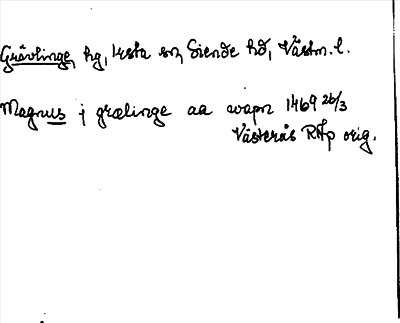 Grävlinge, hg, Irsta sn, Siende hd, Västm. l.
Magnus j grælinge aa wapn 1469 26/3
Västerås RAp orig.